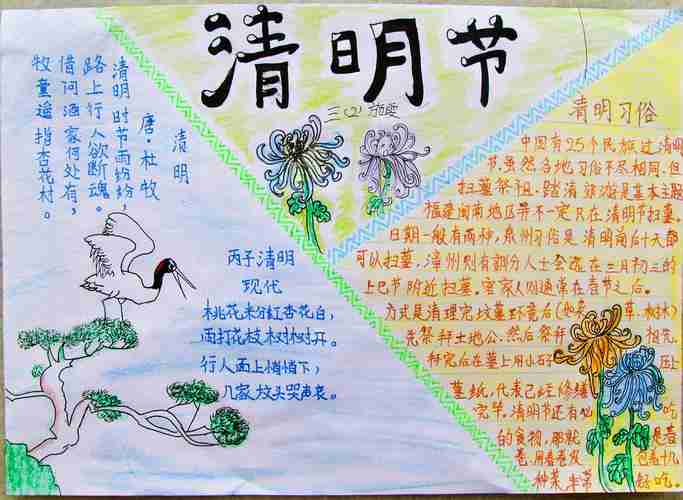 清明节
三(2)
清明
唐·杜牧
清明时节雨纷纷,
路上行人欲断魂。
借问酒家何处有,
牧童遥指杏花村。
丙子清明
现代
桃花粉红杏花白,
雨打花枝树树开。
行人面上悄悄下,
几家坟头哭声哀。
清明习俗
中国有25个民族过清明
节,虽然各地习俗不尽相同,但
扫墓祭祖、踏清 游是基本主题
福建闽南地区并不一定只在清明节扫墓。
日期一般有两种,泉州习俗是清明前后十天都
可以扫墓,漳州则有部分人士会 在三月初三的
上巳节附近扫墓。客家人则通常在春节之后。
方式是清理完坟墓环竟后( 草、树木)
先祭拜土地公,然后祭拜 祖先,
拜完后在墓上用小石 压上
墓纸,代表已经修缮
完毕。清明节还有 吃
的食物,那就 是春
卷,用春卷皮 包着十几
种菜,非常 好吃。